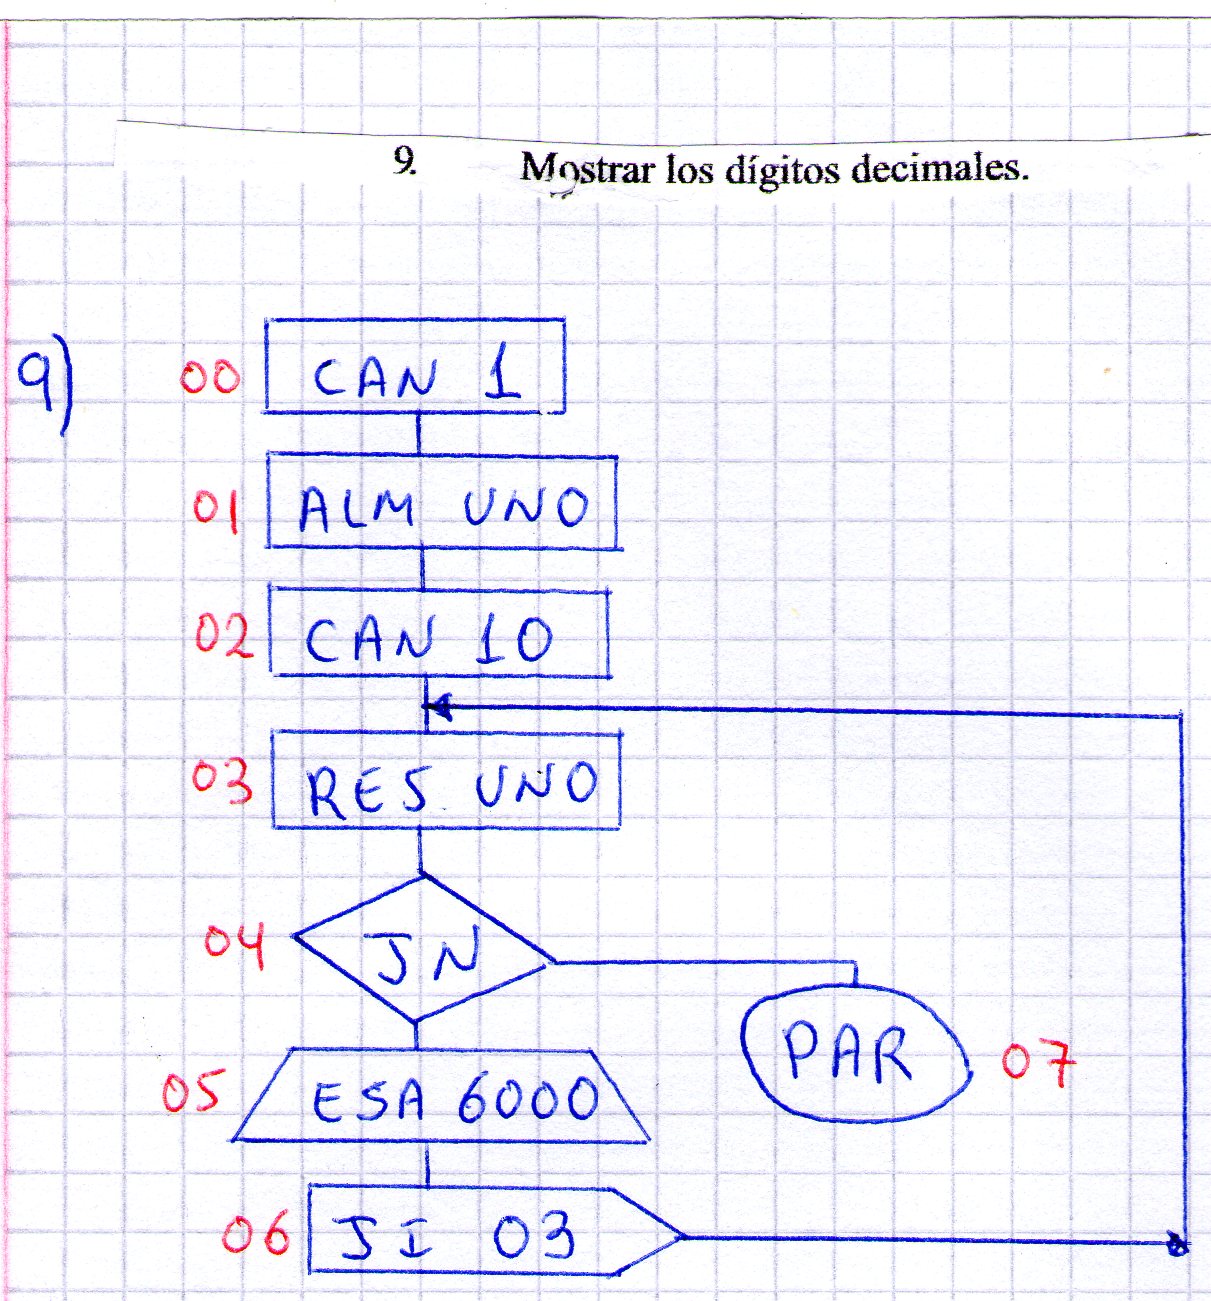 9. Mostrar los dígitos decimales.
9) 00 CAN 1
01 ALM UNO
02 CAN 10
03 RES UNO
04 JN
PAR 07
05 ESA 6000
06 JI 03